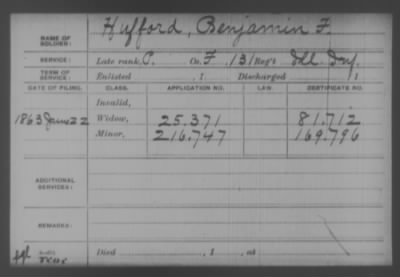 NAME OF SOLDIER: Hufford, Benjamin F.
SERVICE: Late rank, C. Co. F, 131 Reg't Ill. Inf.
TERM OF SERVICE: Enlisted , 1 Discharged , 1
DATE OF FILING. CLASS. APPLICATION NO. LAW. CERTIFICATE NO.
Invalid,
1863 June 22 Widow, 25.371 81.712
Minor, 216.747 169.796
ADDITIONAL SERVICES:
REMARKS:
Died , 1 , at